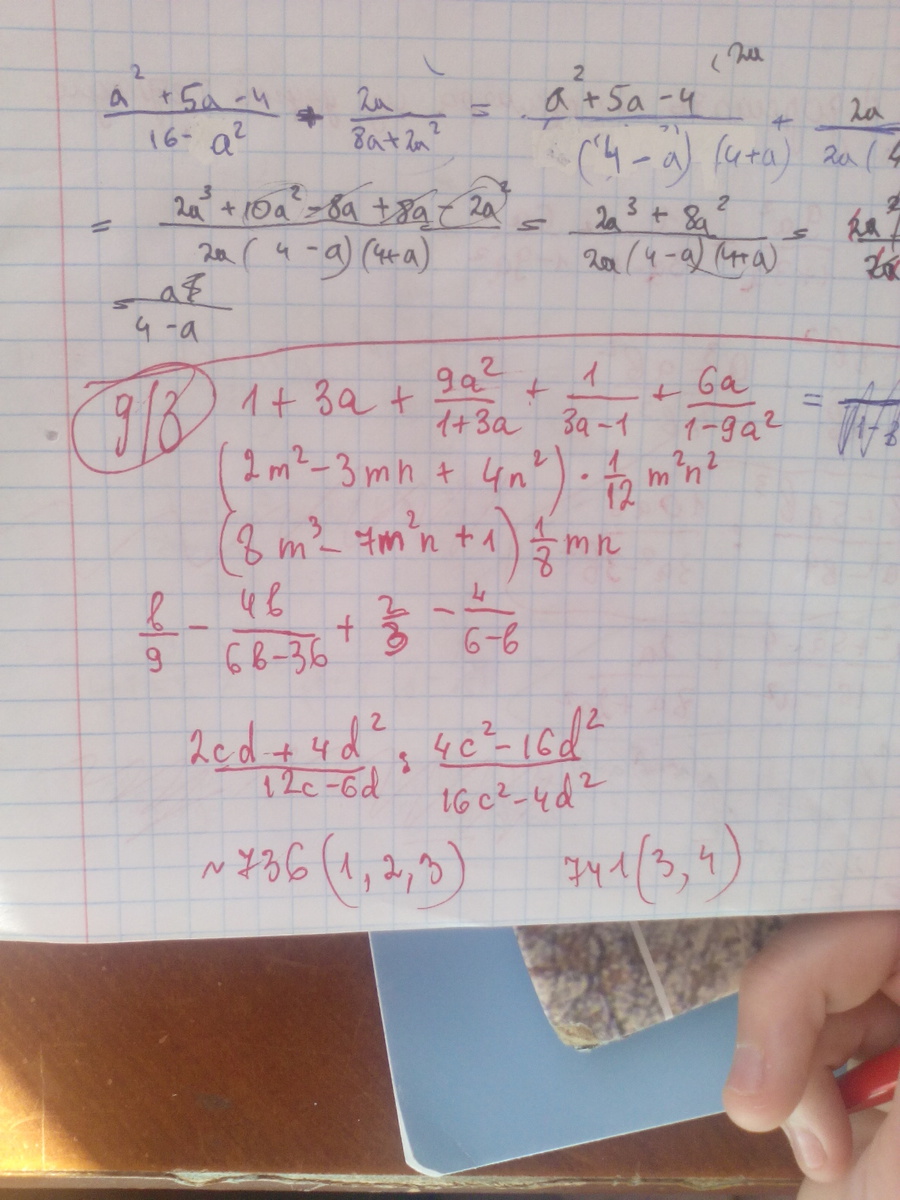 (2a
a² + 5a - 4 / 16 - a² + 2a / 8a + 2a² = a² + 5a - 4 / (4 - a)(4+a) + 2a / 2a(4
= 2a³ + 10a² - 8a + 8a - 2a² / 2a(4 - a)(4+a) = 2a³ + 8a² / 2a(4-a)(4+a) = 2a² / 2a
= a / 4 - a
д/з 1 + 3a + 9a² / 1+3a + 1 / 3a-1 + 6a / 1-9a² =
(2m² - 3mn + 4n²) · 1/12 m²n²
(8m³ - 7m²n + 1) 1/8 mn
b/9 - 4b / 6b-36 + 2/3 - 4 / 6-b
2cd + 4d² / 12c-6d : 4c² - 16d² / 16c² - 4d²
~736 (1, 2, 3) 741 (3, 4)